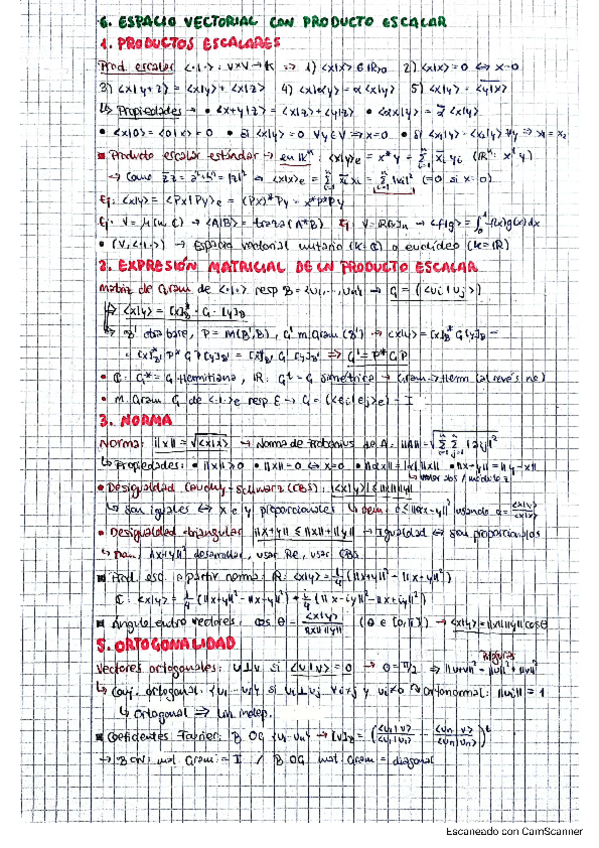 6. ESPACIO VECTORIAL CON PRODUCTO ESCALAR
1. PRODUCTOS ESCALARES
Prod. escalar <·|·>: V×V→K :→ 1) <x|x> ∈ ℝ≥0 2) <x|x> = 0 ⇔ x=0
3) <x|y+z> = <x|y> + <x|z> 4) <x|αy> = α<x|y> 5) <x|y> = \overline{<y|x>}
↳ Propiedades → • <x+y|z> = <x|z> + <y|z> • <αx|y> = \overline{α} <x|y>
• <x|0> = <0|x> = 0 • si <x|y> = 0 ∀y∈V ⇒ x=0 • si <x₁|y> = <x₂|y> ∀y ⇒ x₁ = x₂
▪ Producto escalar estándar → en Kⁿ: <x|y>e = x*y = Σ x̄ᵢ yᵢ (ℝⁿ: xᵗy)
→ Como z̄z = |z|² → <x|x>e = Σ x̄ᵢxᵢ = Σ|xᵢ|² (=0 si x=0)
Ej: <x|y> = <Px|Py>e = (Px)*Py = x*P*Py
Ej: V = M(n, C) → <A|B> = traza(A*B) Ej: V = → <f|g> = ∫₀¹ f(x)g(x)dx
• (V, <·|·>) → Espacio vectorial unitario (K=C) o euclídeo (K=ℝ)
2. EXPRESIÓN MATRICIAL DE UN PRODUCTO ESCALAR
Matriz de Gram de <·|·> resp B = {v₁,...,vₙ} → G = (<vᵢ|vⱼ>)
↳ <x|y> = [x]*_B · G · [y]_B
↳ B' otra base, P = M(B',B), G' m. Gram (B') → <x|y> = [x]*_B G [y]_B =
= [x]*_B' P* G P [y]_B' = [x]*_B' G' [y]_B' ⇒ G' = P*GP
• C: G* = G hermitiana, ℝ: Gᵗ = G simétrica → Gram → Herm (al revés no)
• M. Gram G de <·|·>e resp E → G = (<eᵢ|eⱼ>e) = I
3. NORMA
Norma: ||x|| = √<x|x> → Norma de Frobenius de A: ||A|| = √ΣΣ|aᵢⱼ|²
↳ Propiedades: • ||x|| ≥ 0 • ||x|| = 0 ⇔ x=0 • ||αx|| = |α| ||x|| • ||x-y|| = ||y-x||
↳ valor abs / módulo
• Desigualdad Cauchy-Schwarz (CBS): |<x|y>| ≤ ||x|| ||y||
↳ Son iguales ⇔ x e y proporcionales ↳ dem: 0 ≤ ||αx-y||² usando α = <x|y>/<x|x>
• Desigualdad triangular ||x+y|| ≤ ||x|| + ||y|| → Igualdad ⇔ son proporcionales
↳ ||x+y||² desarrollar, usar Re, usar CBS
▪ Prod. esc. a partir norma: ℝ: <x|y> = ¼(||x+y||² - ||x-y||²)
C: <x|y> = ¼(||x+y||² - ||x-y||²) + i/4(||x-iy||² - ||x+iy||²)
▪ Ángulo entre vectores: cos θ = <x|y>/||x|| ||y|| (θ ∈ [0,π]) → <x|y> = ||x|| ||y|| cos θ
5. ORTOGONALIDAD
Vectores ortogonales: u⊥v si <u|v> = 0 → θ = π/2 ⇒ ||u+v||² = ||u||² + ||v||²
↳ Conj. ortogonal: {v₁...vₙ} si vᵢ⊥vⱼ ∀i≠j y vᵢ≠0 → Ortonormal: ||vᵢ|| = 1
↳ Ortogonal ⇒ lin. indep.
▪ Coeficientes Fourier: B OG {v₁...vₙ} → [v]_B = (<v₁|v>/<v₁|v₁> ... <vₙ|v>/<vₙ|vₙ>)ᵗ
→ B ON: mat. Gram = I / B OG: mat. Gram = diagonal
Escaneado con CamScanner